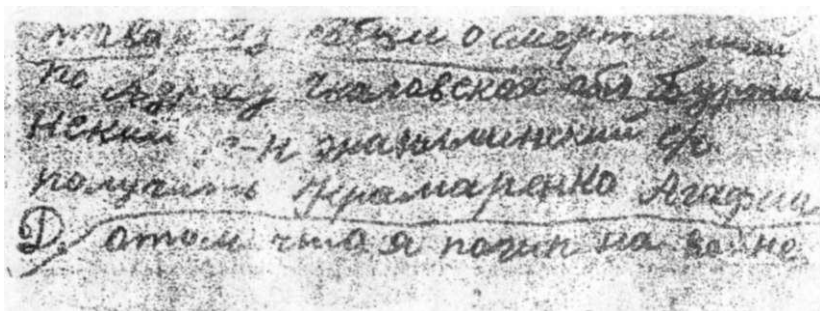 товарищ сообщи о смерти моей
по адресу Чкаловская обл Буртин
нский р-н с/с
получить Крамаренко Агафии
Д. о том что я погиб на войне